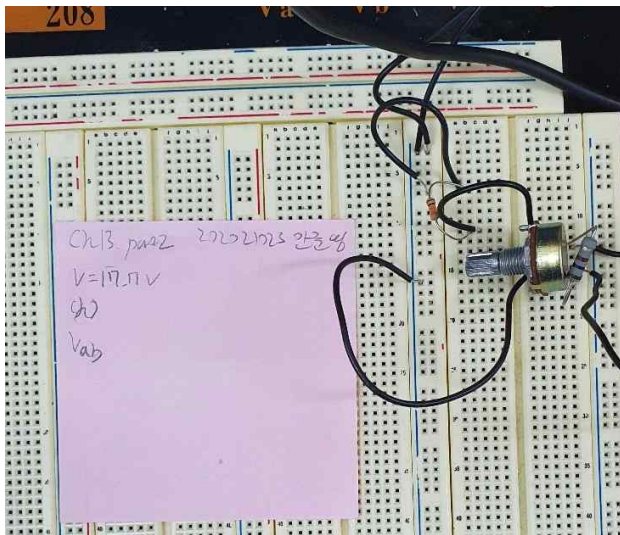 208
Va Vb
Ch13. par2 202021025 안준영
V=17.7V
(h)
Vab